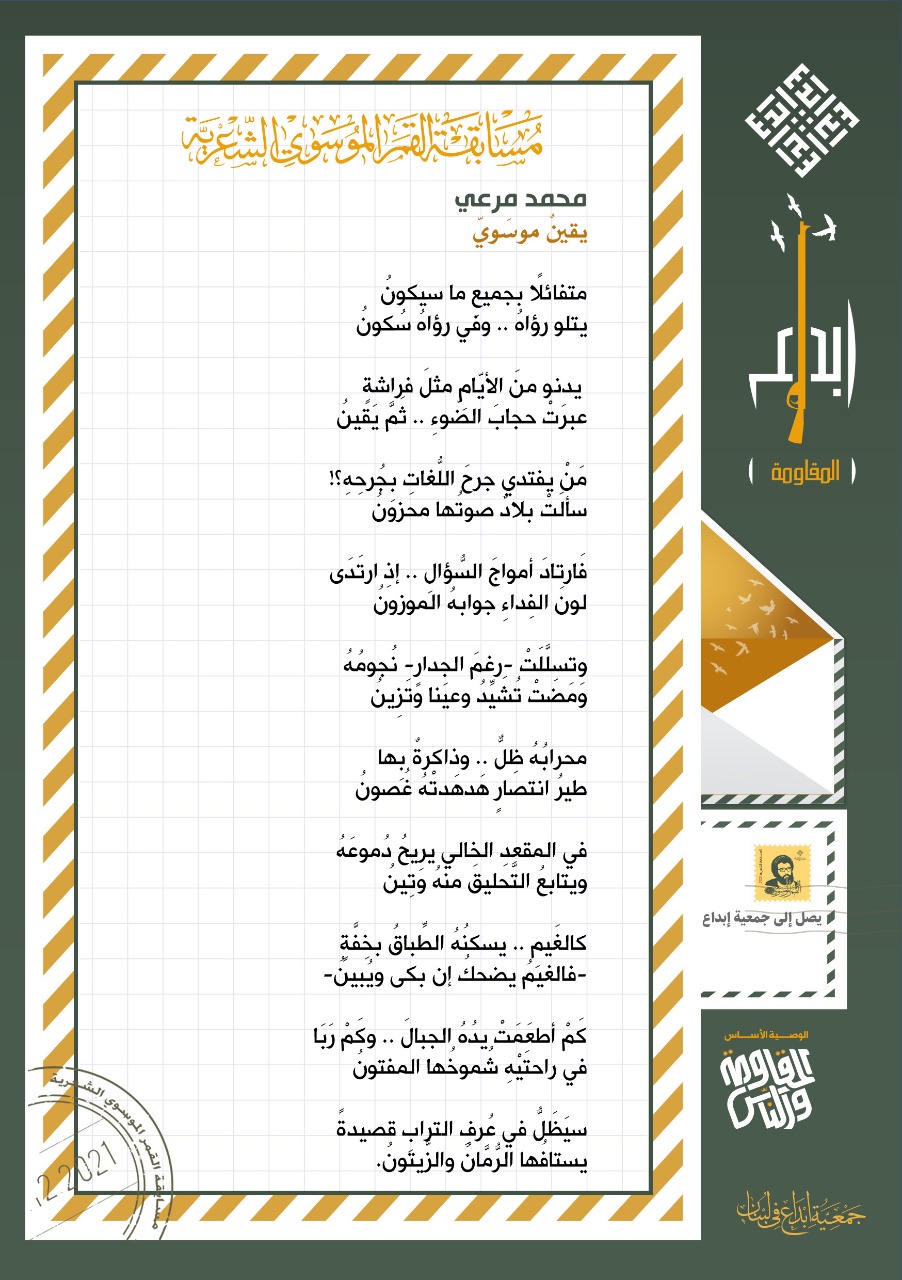 مُسَابَقَة القَمَر المُوسَوي الشِّعْرِيَّة
محمد مرعي
يقينٌ موسَويّ
متفائلًا بجميعِ ما سيكونُ
يتلو رؤاهُ .. وفي رؤاهُ سُكونُ
يدنو منَ الأيّامِ مثلَ فراشةٍ
عبرَتْ حجابَ الضّوءِ .. ثمَّ يَقينُ
مَنْ يفتدي جرحَ اللُّغاتِ بجُرحِهِ؟!
سألتْ بلادٌ صوتُها محزونُ
فَارتادَ أمواجَ السُّؤال .. إذِ ارتَدَى
لونَ الفِداءِ جوابهُ الموزونُ
وتسلَّلَتْ -رغمَ الجدارِ- نُجومُهُ
وَمَضَتْ تُشيِّدُ وعيَنا وَتَزِينُ
محرابُهُ ظِلٌّ .. وذاكرةٌ بها
طيرُ انتصارٍ هَدهَدتْهُ غُصونُ
في المقعدِ الخالي يريحُ دُموعَهُ
ويتابعُ التَّحليقَ منهُ وَتِينُ
كالغَيمِ .. يسكنُهُ الطِّباقُ بخِفَّةٍ
-فالغيَمُ يضحكُ إن بكى ويُبينُ-
كَمْ أطعَمَتْ يدُهُ الجبالَ .. وكَمْ رَبَا
في راحتَيْهِ شُموخُها المفتونُ
سيَظَلُّ في عُرفِ الترابِ قصيدةً
يستافُها الرُّمّانُ والزَّيتونُ.
إبداع
المقاومة
يصل إلى جمعية إبداع
الوصية الأساس
المقاومة
والناس
جمعية إبداع في لبنان
مسابقة القمر الموسوي الشعرية
2 2021